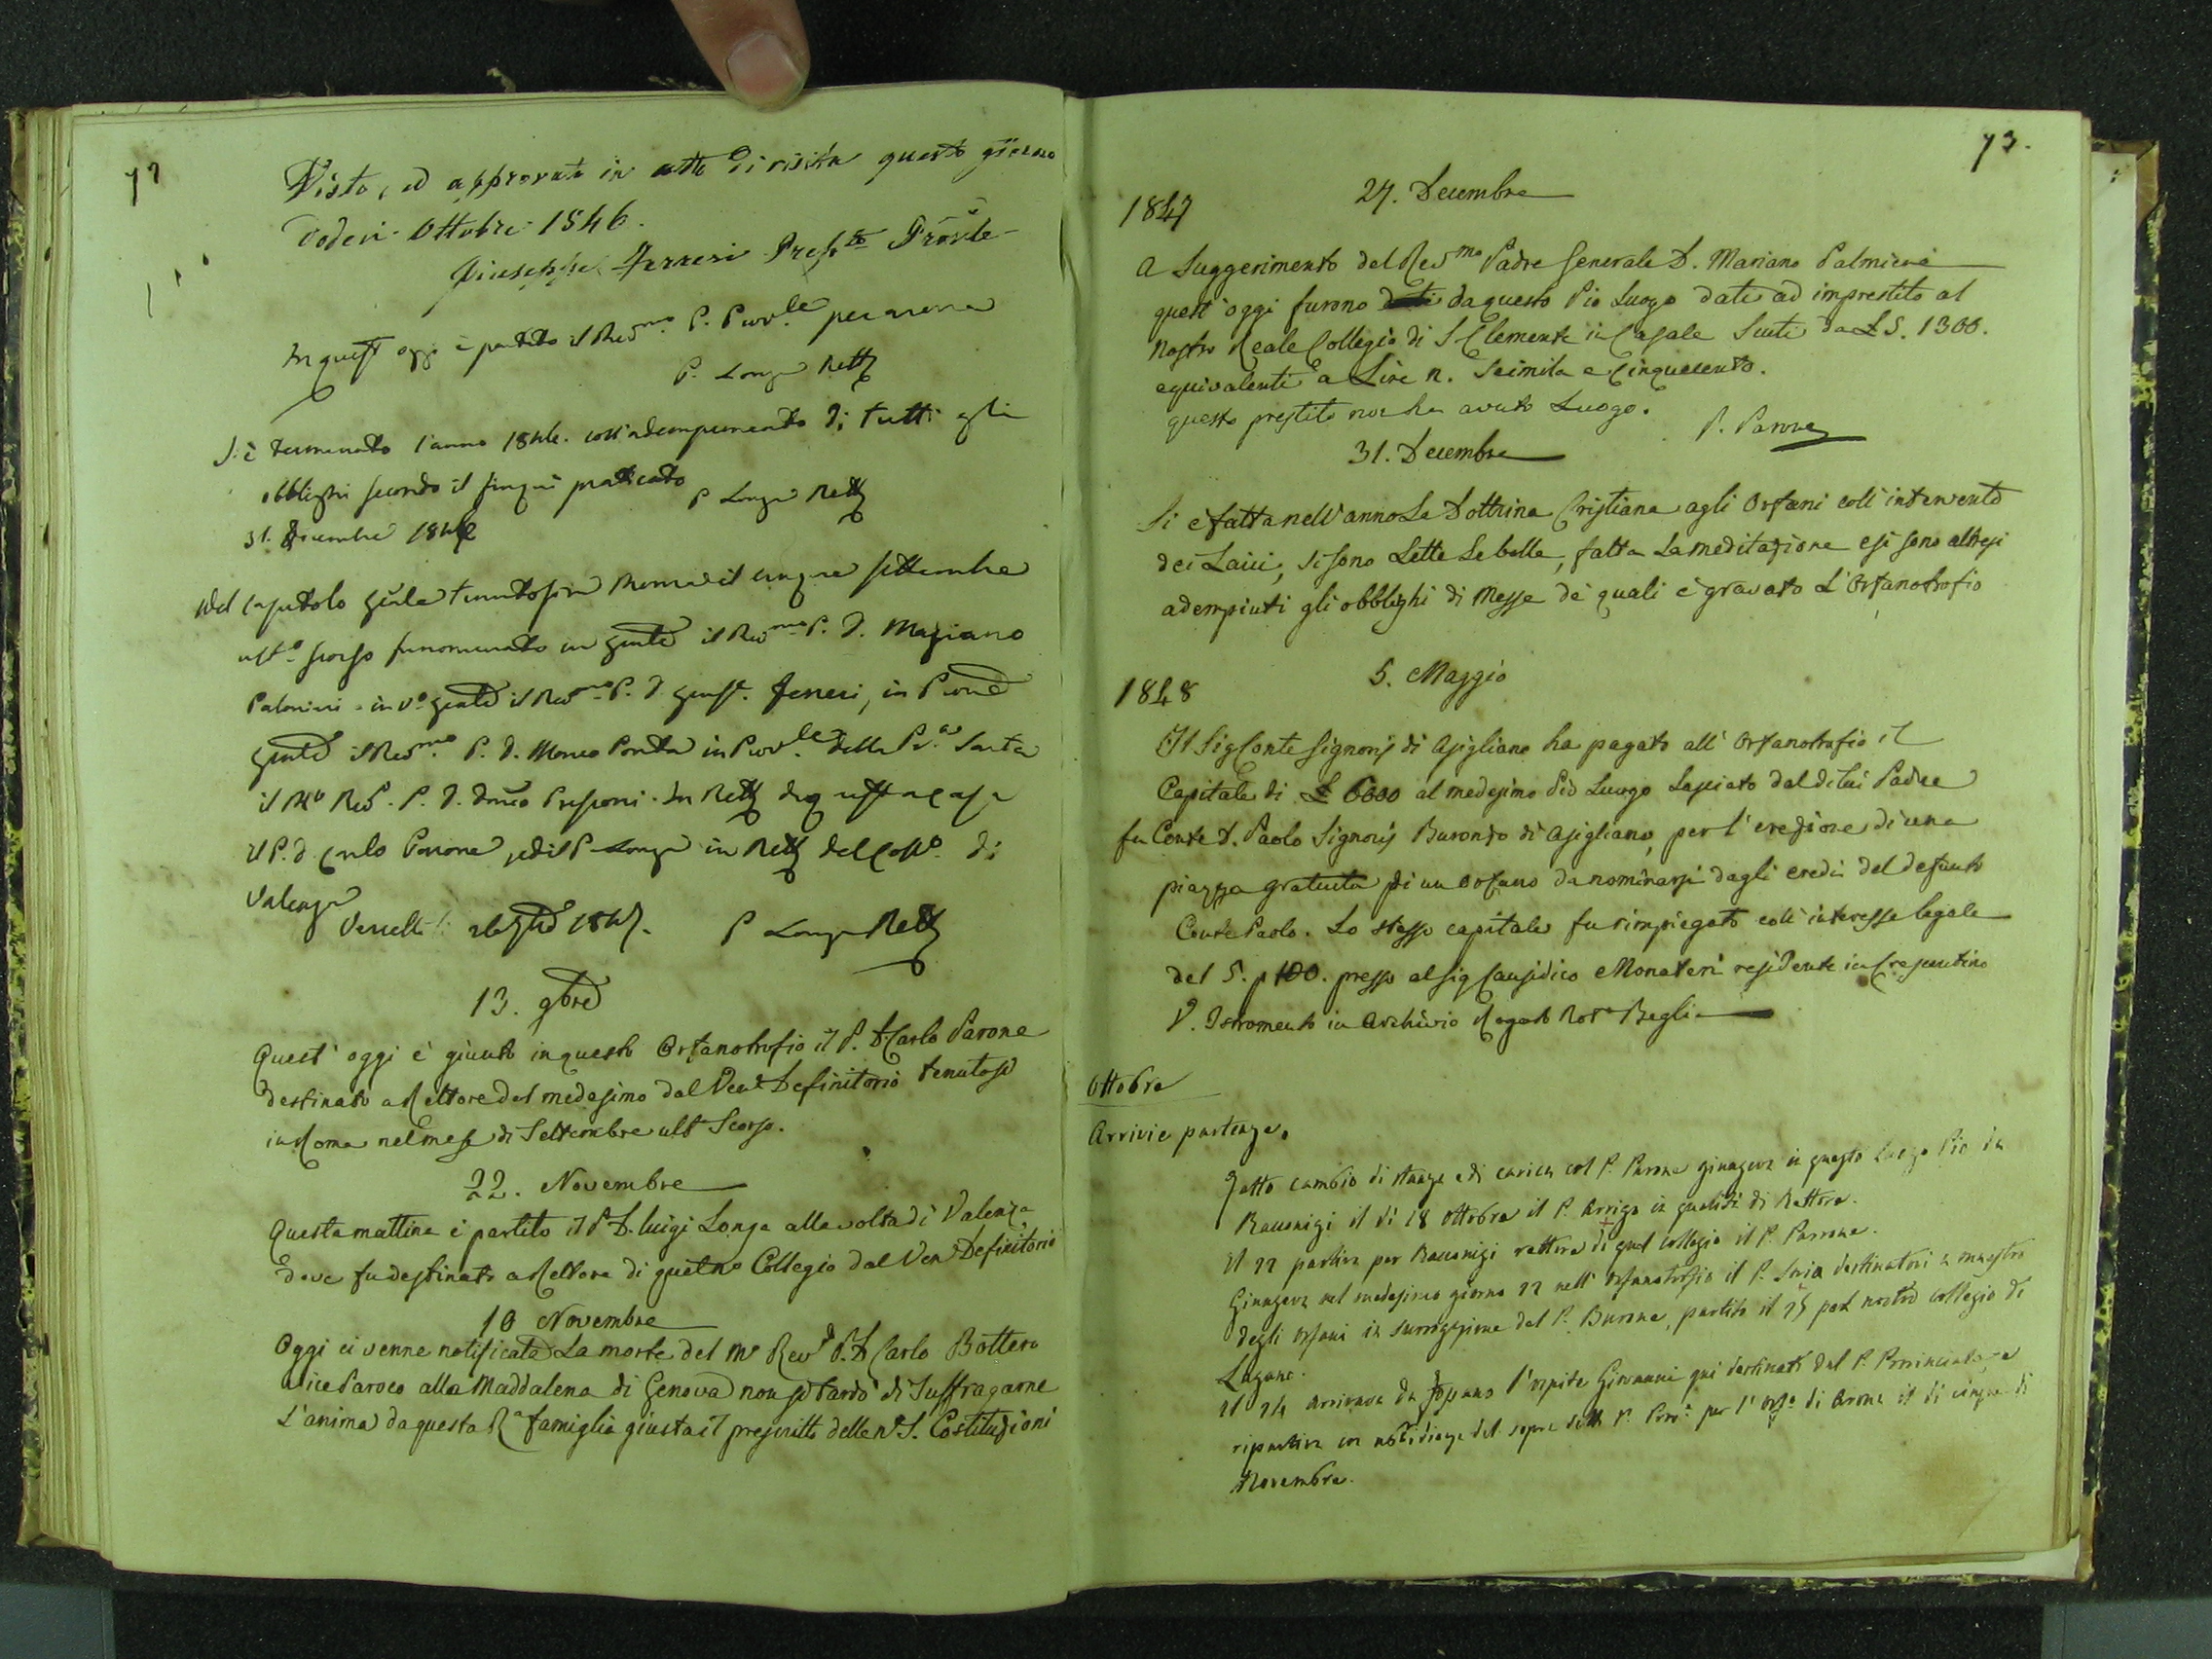 72
Visto, ed approvato in atto di visita questo giorno
dodeci Ottobre 1846.
Giuseppe Ferreri Prep.to Prov.le
In quest' oggi è partito il Rev.mo P. Prov.le per
P. Longa Rett.e
Si è terminato l'anno 1846. coll'adempimento di tutti gli
obblighi secondo il finquì praticato
P Longa Rett.e
31. Dicembre 1846
Nel Capitolo g.rale tenutosi in Roma il cinque settembre
ult.o scorso fu nominato in g.rale il Rev.mo P. D. Mariano
Palmieri in V.o g.rale il Rev.mo P. D. Gius.e Ferreri, in
g.rale il Rev.mo P. D. Marco Ponta in Prov.le della
il M.o Rev.o P. D. In Rett.e di q.ta casa
il P. D. Carlo Parone, ed il P. Longa in Rett.e del Coll.o di
Valenza
Vercelli li 1847. P Longa Rett.e
13. 9bre
Quest' oggi è giunto in questo Orfanotrofio il P. D. Carlo Parone
destinato a Rettore del medesimo dal Ven.e Definitorio tenutosi
in Roma nel mese di Settembre ult.o Scorso.
22. Novembre
Questa mattina è partito il P. D. Luigi Longa alla volta di Valenza
dove fu destinato a Rettore di quel no Collegio dal Ven.e Definitorio
10 Novembre
Oggi ci venne notificata la morte del M.o Rev.d P. D. Carlo Bottero
Vice Paroco alla Maddalena di Genova non si tardò di Suffragarne
L'anima da questa R.a famiglia giusta il prescritto delle N. S. Costituzioni
73.
27. Decembre
1847
A Suggerimento del Rev.mo Padre Generale D. Mariano Palmieri
quest' oggi furono dati da questo Pio Luogo dati ad imprestito al
nostro Reale Collegio di S. Clemente in Casale Scuti da L 5. 1300.
equivalenti a Lire n. Seimila e Cinquecento.
questo prestito non ha avuto Luogo.
P. Parone
31. Decembre
Si è fatta nell' anno La Dottrina Cristiana agli Orfani coll' intervento
dei Laici, si sono Lette Le bolle, fatta La meditazione e si sono altresi
adempiuti gli obblighi di Messe de' quali è gravato L'Orfanotrofio
5. Maggio
1848
Il Sig Conte Signoris di Asigliano ha pagato all' Orfanotrofio il
Capitale di L 6000 al medesimo Pio Luogo Lasciato dal di Lui Padre
fu Conte D. Paolo Signoris Buronzo di Asigliano, per l'erezione di una
piazza gratuita di un orfano da nominarsi dagli eredi del defunto
Conte Paolo. Lo stesso capitale fu rimpiegato coll' interesse legale
del 5. p 100. presso al Sig Causidico Monateri residente in Crescentino
V. Istromento in Archivio Rogato Not.o Baglia
Ottobre
Arrivi e partenze.
Fatto cambio di stanza e di carica col P. Parone giungeva in questo Luogo Pio da
Racconigi il dì 18 Ottobre il P. Arrigo in qualità di Rettore.
Il 22 partiva per Racconigi rettore di quel collegio il P. Parone.
Giungeva nel medesimo giorno 22 nell' Orfanotrofio il P. Soria destinatovi a maestro
degli orfani in surrogazione del P. Burone, partito il 25 pel nostro collegio di
Lugano.
Il 24 arrivava da Fossano l'ospite Giovanni qui destinato dal P. Provinciale e
ripartiva in ubbidienza del sopra detto P. Prov.e per l'Orf.o di Arona il dì cinque di
Novembre.